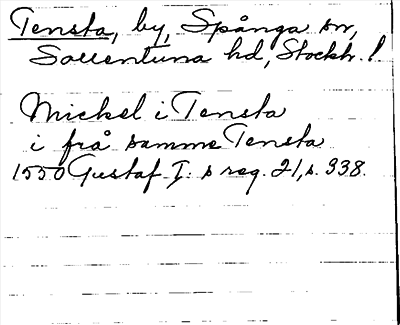 Tensta, by, Spånga sn,
Sollentuna hd, Stockh. l
Mickel i Tensta
i frå samme Tensta
1550 Gustaf I: s reg. 21, s. 338.